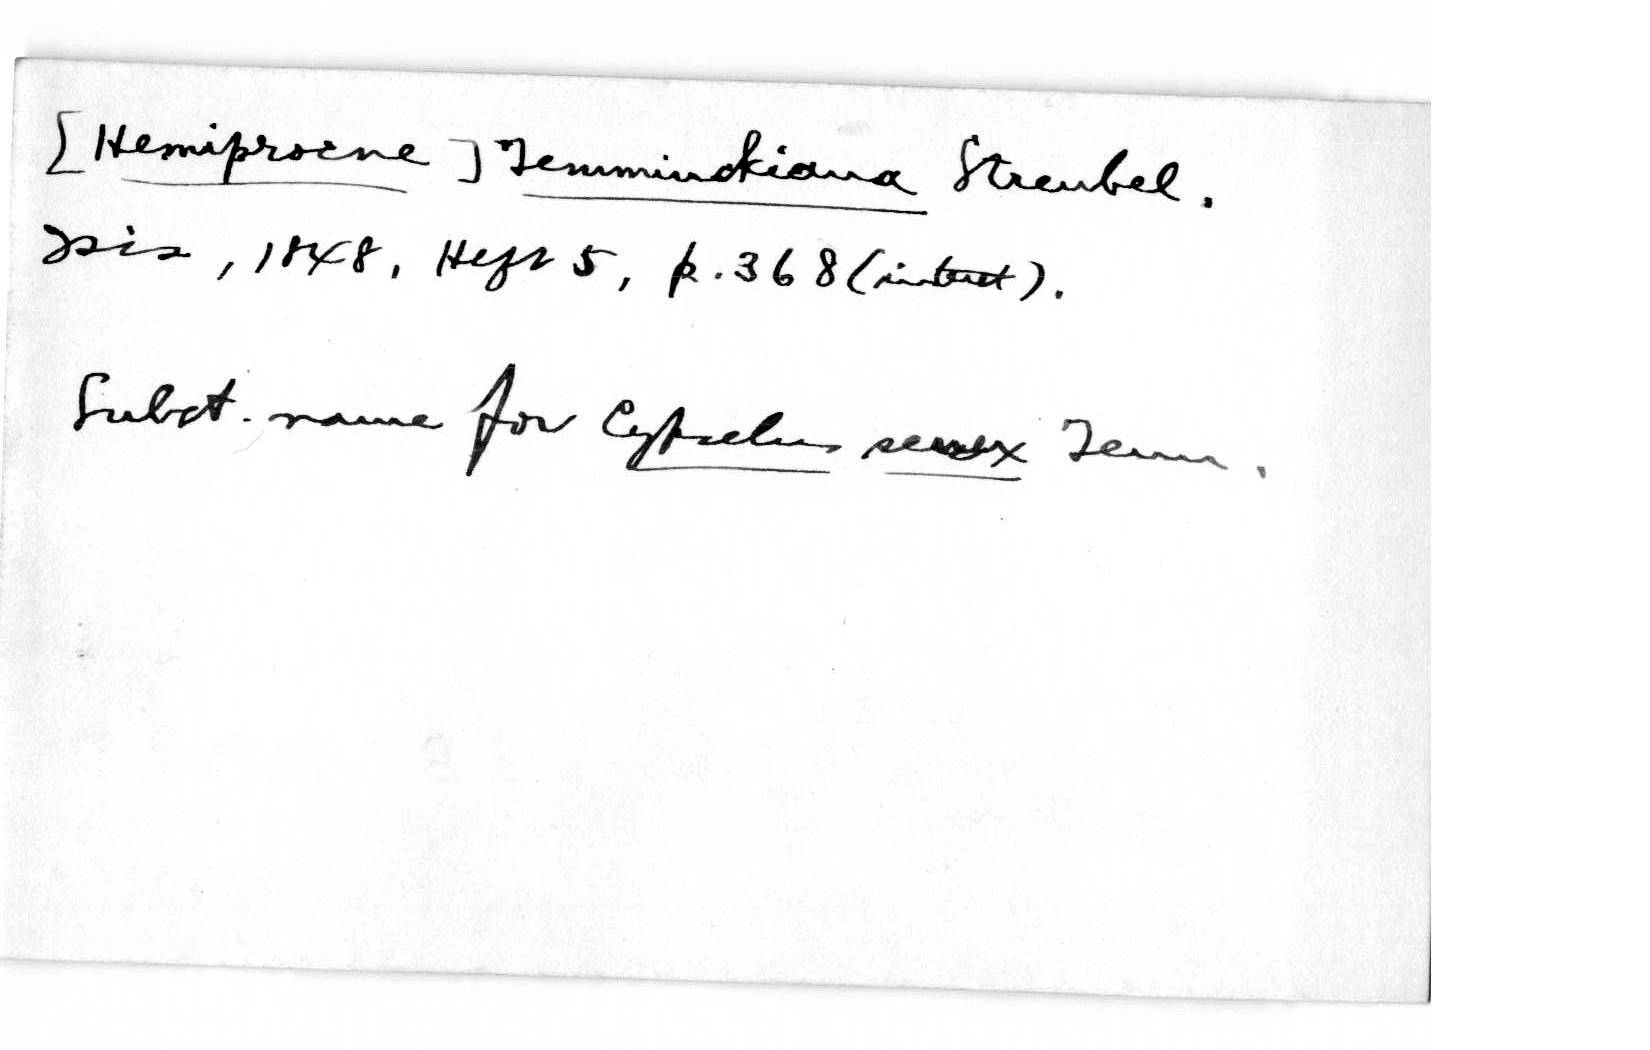 [Hemiprocne] Temminckiana Streubel.
Isis, 1848, Heft 5, p. 368 (in text).
Subst. name for Cypselus senex Temm.